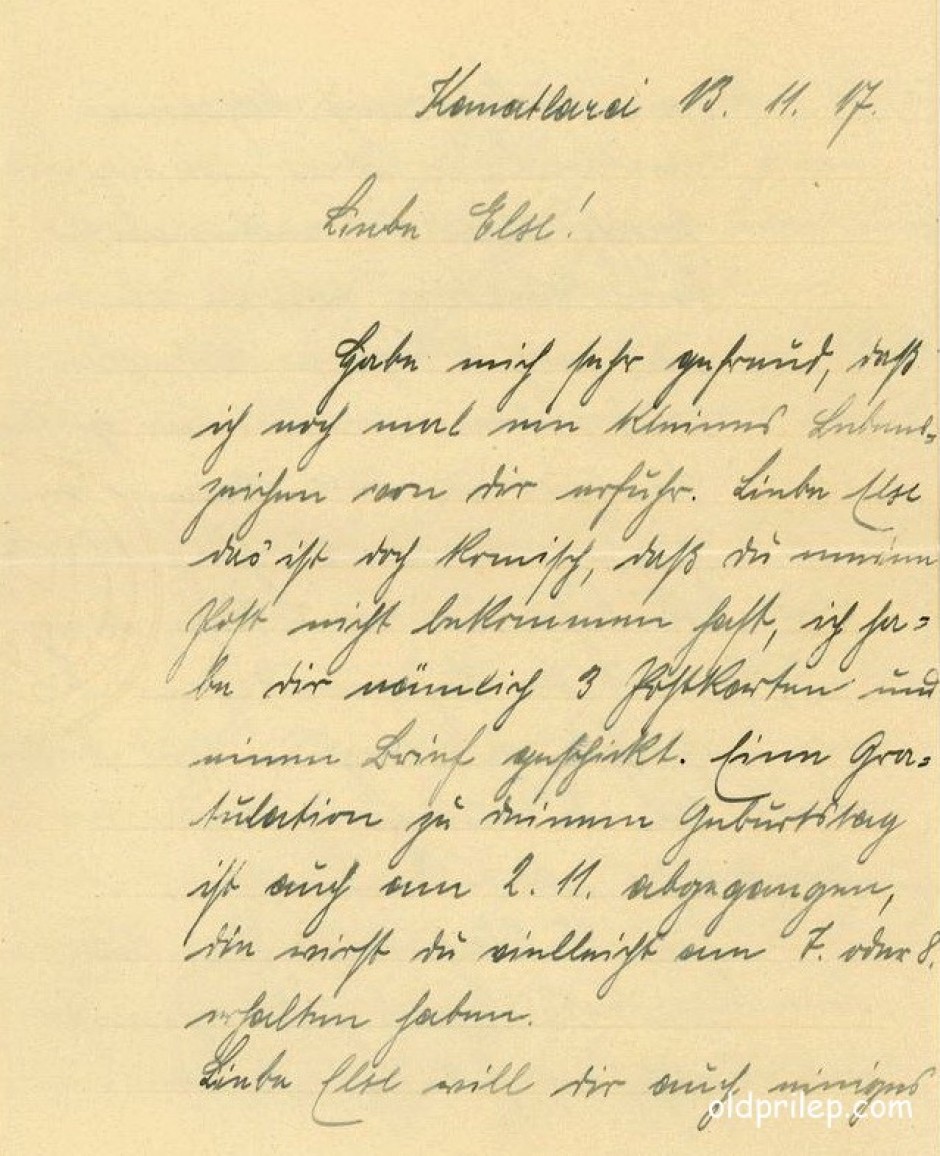 Kanatlarci 13. 11. 17.
Liebe Else!
Habe mich sehr gefreud, daß
ich noch mal ein kleines Lebens-
zeichen von dir erfuhr. Liebe Else
das ist doch komisch, daß du meine
Post nicht bekommen hast, ich ha-
be dir nämlich 3 Postkarten und
einen Brief geschickt. Eine Gra-
tulation zu deinem Geburtstag
ist auch am 2. 11. abgegangen,
die wirst du vielleicht am 7. oder 8.
erhalten haben.
Liebe Else will dir auch einiges
oldprilep.com